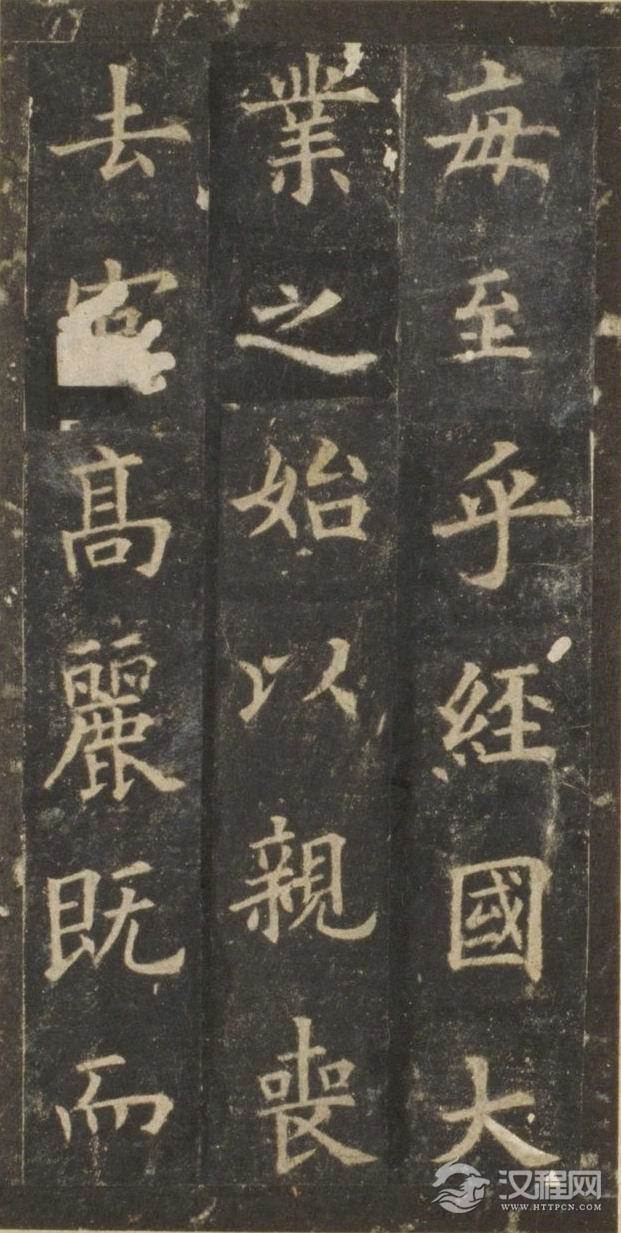 每至乎經國大
業之始以親喪
去官高麗既而
汉程网
WWW.HTTPCN.COM